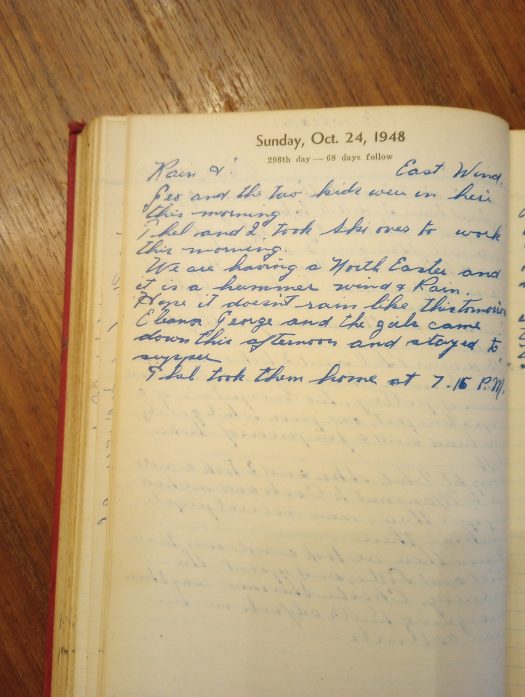 Sunday, Oct. 24, 1948
298th day — 68 days follow
Rain & East Wind.
Geo and the two kids were in here
this morning
Thel and I took Ike over to work
this morning.
We are having a North Easter and
it is a hummer wind & Rain.
Hope it doesn't rain like this tomorrow
Eleanor George and the gals came
down this afternoon and stayed to
supper
Thel took them home at 7.15 P.M.